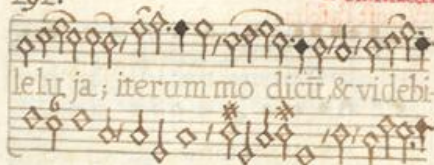 191.
lelu ja ; iterum mo dicū, & videbi-
6